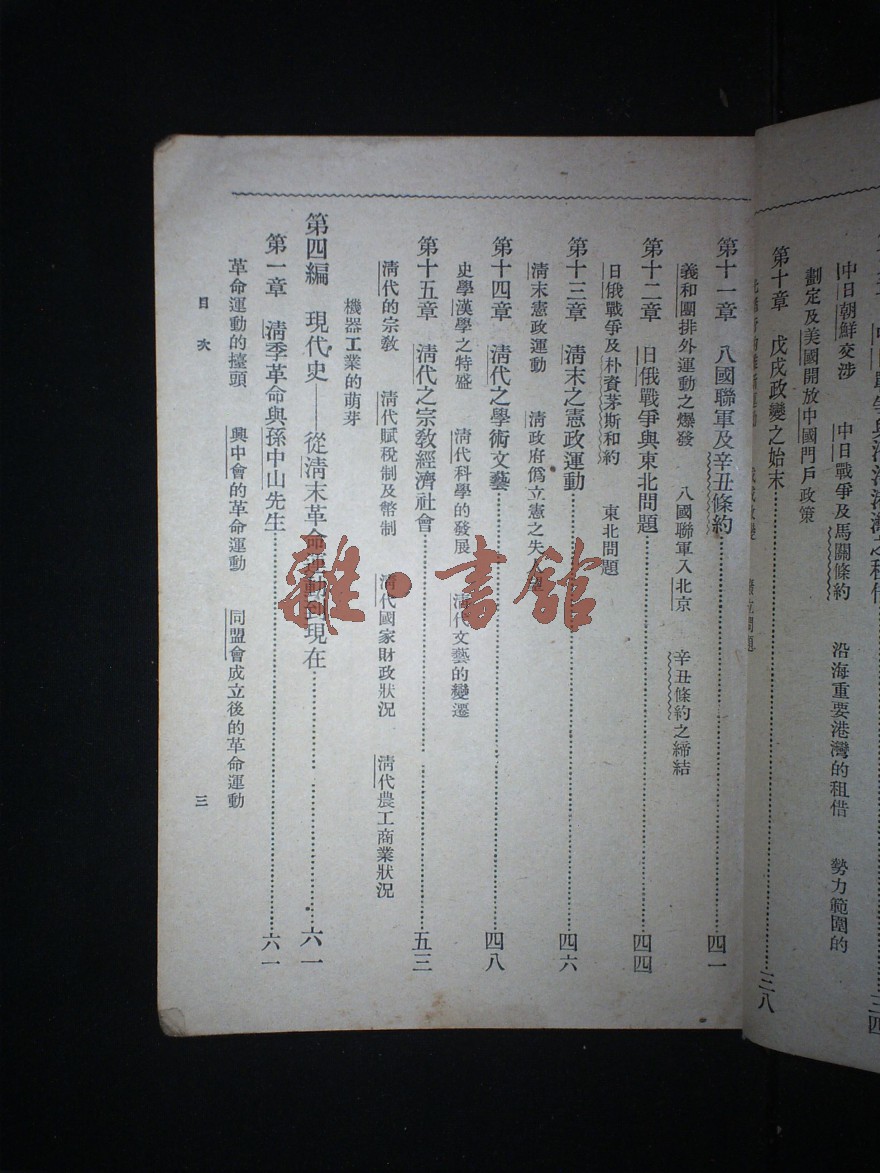 中日朝鮮交涉　中日戰爭及馬關條約　沿海重要港灣的租借　勢力範圍的
劃定及美國開放中國門戶政策
第十章　戊戌政變之始末……三八
第十一章　八國聯軍及辛丑條約……四一
義和團排外運動之爆發　八國聯軍入北京　辛丑條約之締結
第十二章　日俄戰爭與東北問題……四四
日俄戰爭及朴資茅斯和約　東北問題
第十三章　清末之憲政運動……四六
清末憲政運動　清政府僞立憲之失人望
第十四章　清代之學術文藝……四八
史學漢學之特盛　清代科學的發展　清代文藝的變遷
第十五章　清代之宗教經濟社會……五三
清代的宗教　清代賦稅制及幣制　清代國家財政狀況　清代農工商業狀況
機器工業的萌芽
第四編　現代史——從清末革命運動到現在……六一
第一章　清季革命與孫中山先生……六一
革命運動的擡頭　興中會的革命運動　同盟會成立後的革命運動
目次　三
雜·書館